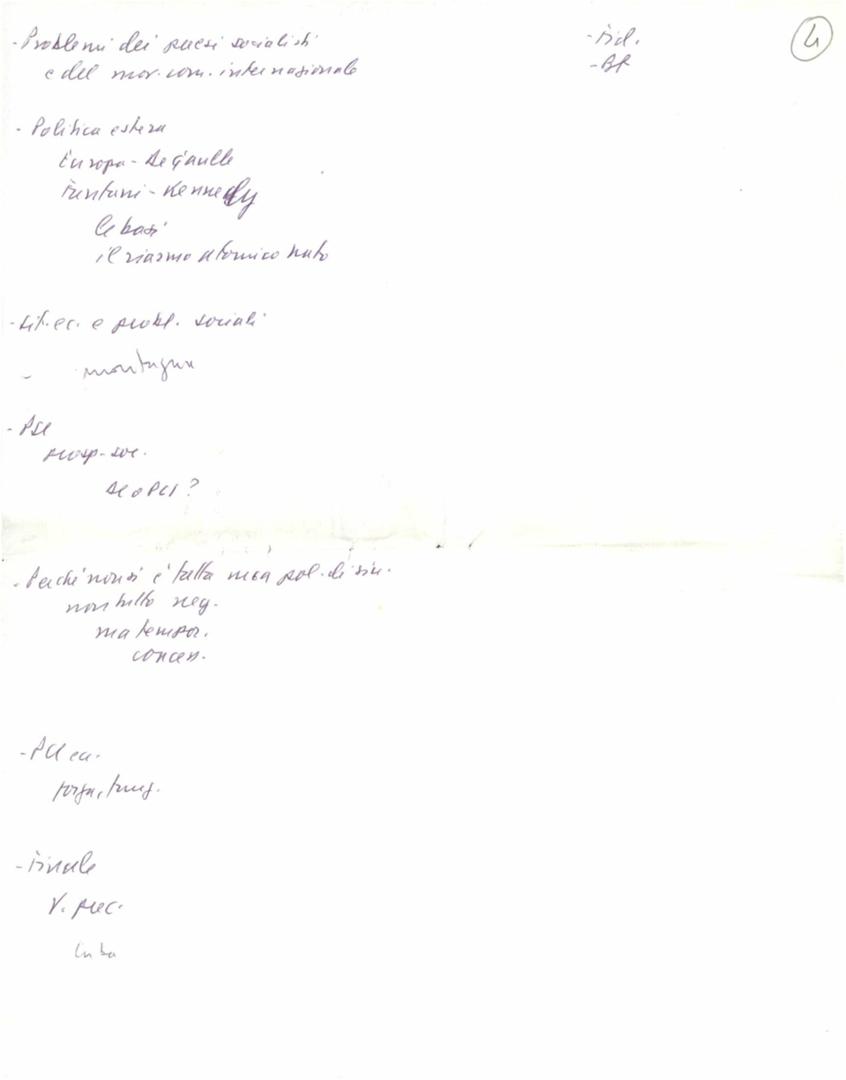 4
- Problemi dei paesi socialisti
e del mov. com. internazionale
- Fid.
- BR
- Politica estera
Europa - De Gaulle
Fanfani - Kennedy
le basi
il riarmo atomico nato
- Sit. ec. e probl. sociali
- montagna
- PSI
prosp. soc.
DC o PCI?
- Perché non si è fatta una pol. di sin.
non tutto neg.
ma tempor.
concen.
- PCI
forza,
- Finale
V. prec.
Cuba